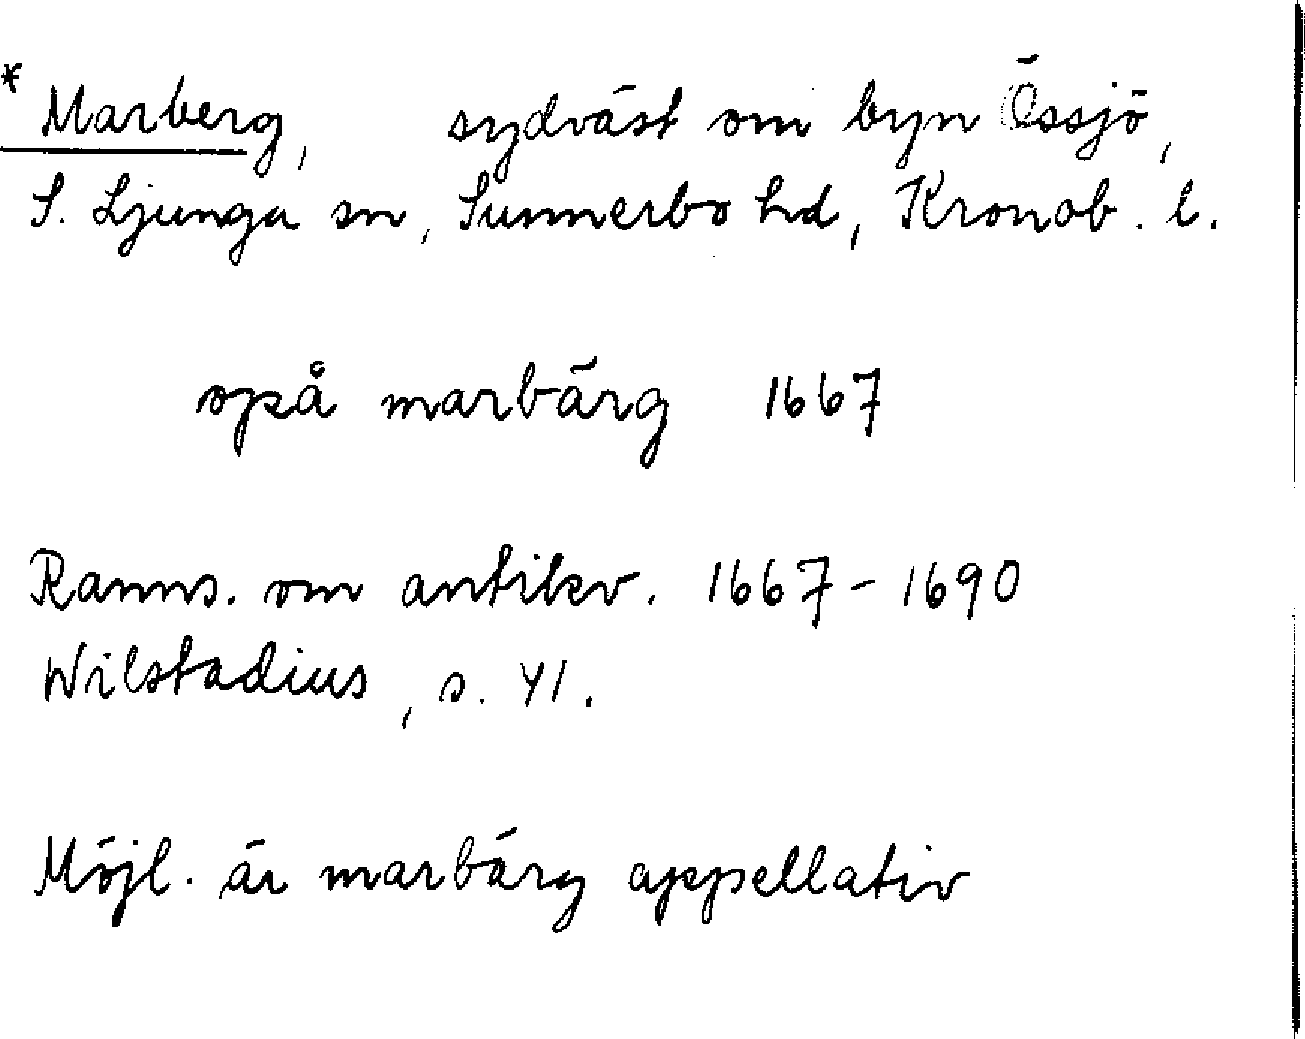 * Marberg, sydväst om byn Össjö,
S. Ljunga sn, Sunnerbo hd, Kronob. l.
opå marbärg 1667
Ranns. om antikv. 1667-1690
Wilstadius, s. 41.
Möjl. är marbärg appellativ